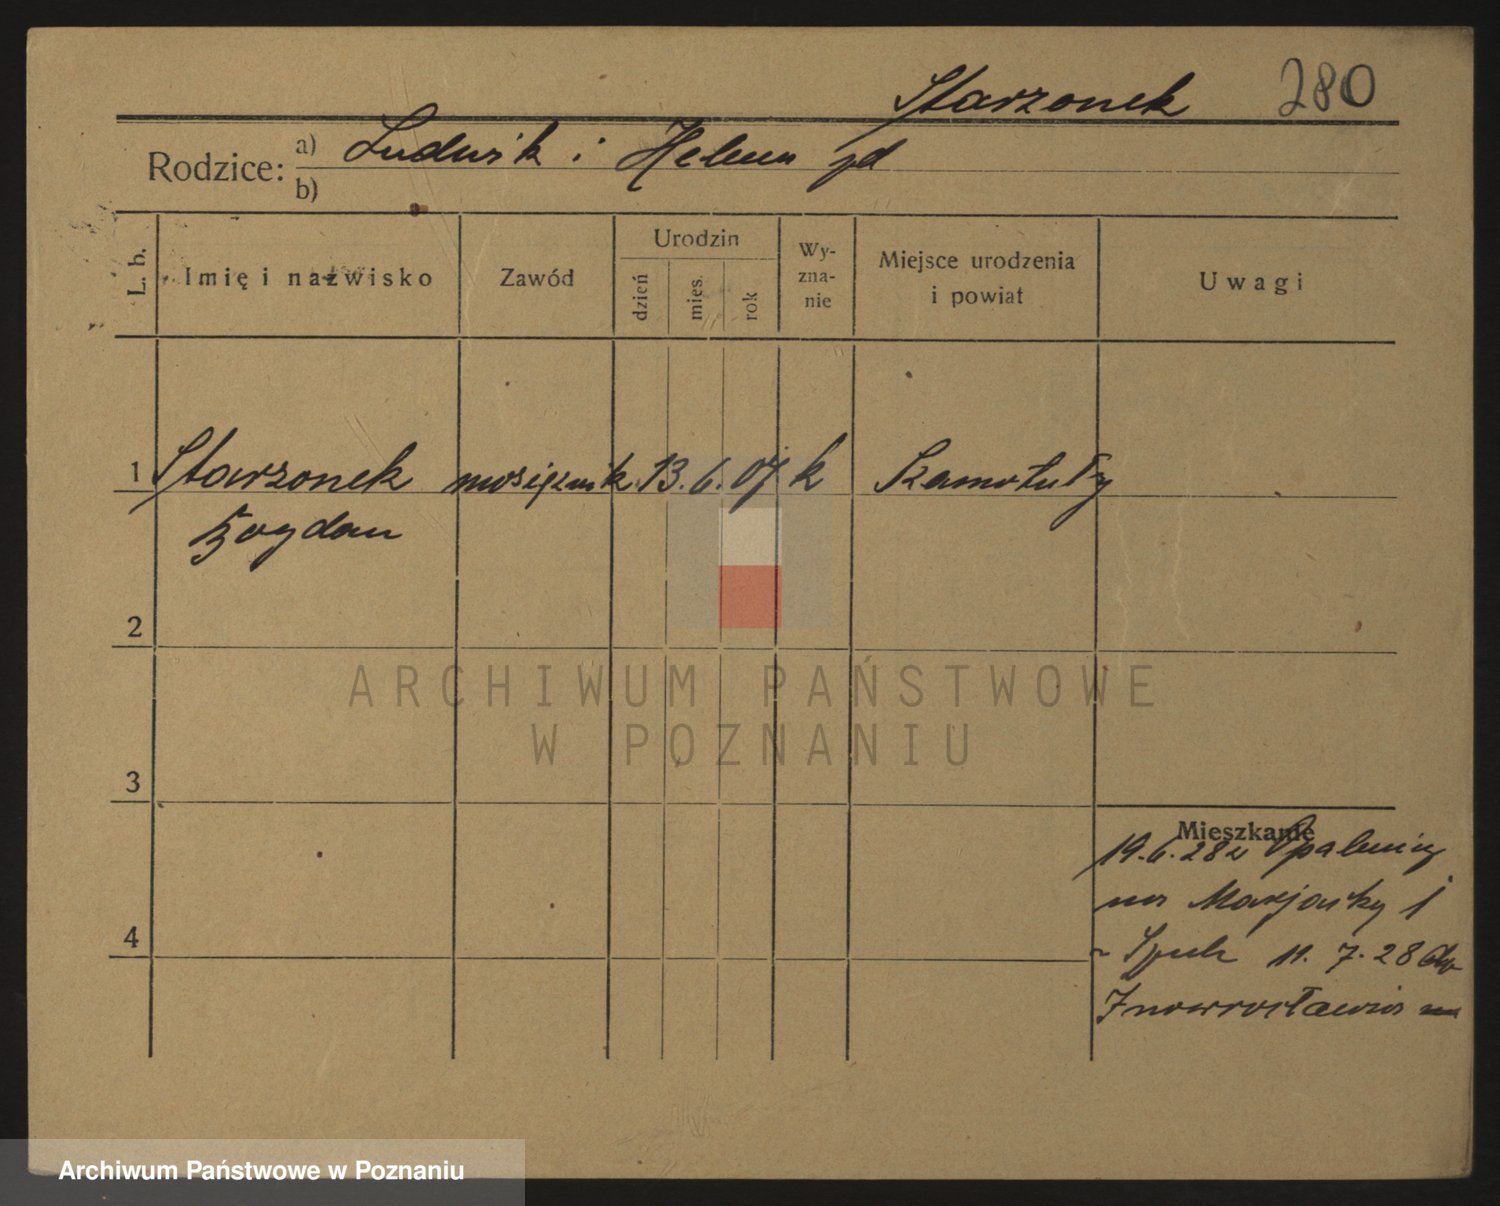 Starzonek 280
Rodzice: a) Ludwik i Helena
b)
L. b. Imię i nazwisko Zawód Urodzin dzień mies. rok Wy-zna-nie Miejsce urodzenia i powiat Uwagi
1 Starzonek mosiężnik 13. 6. 07 k Szamotuły
Bogdan
2
ARCHIWUM PAŃSTWOWE
W POZNANIU
3
Mieszkanie
19.6.28 z Opalenicy
na 1
4
11. 7. 28 do
Inowrocławia
Archiwum Państwowe w Poznaniu